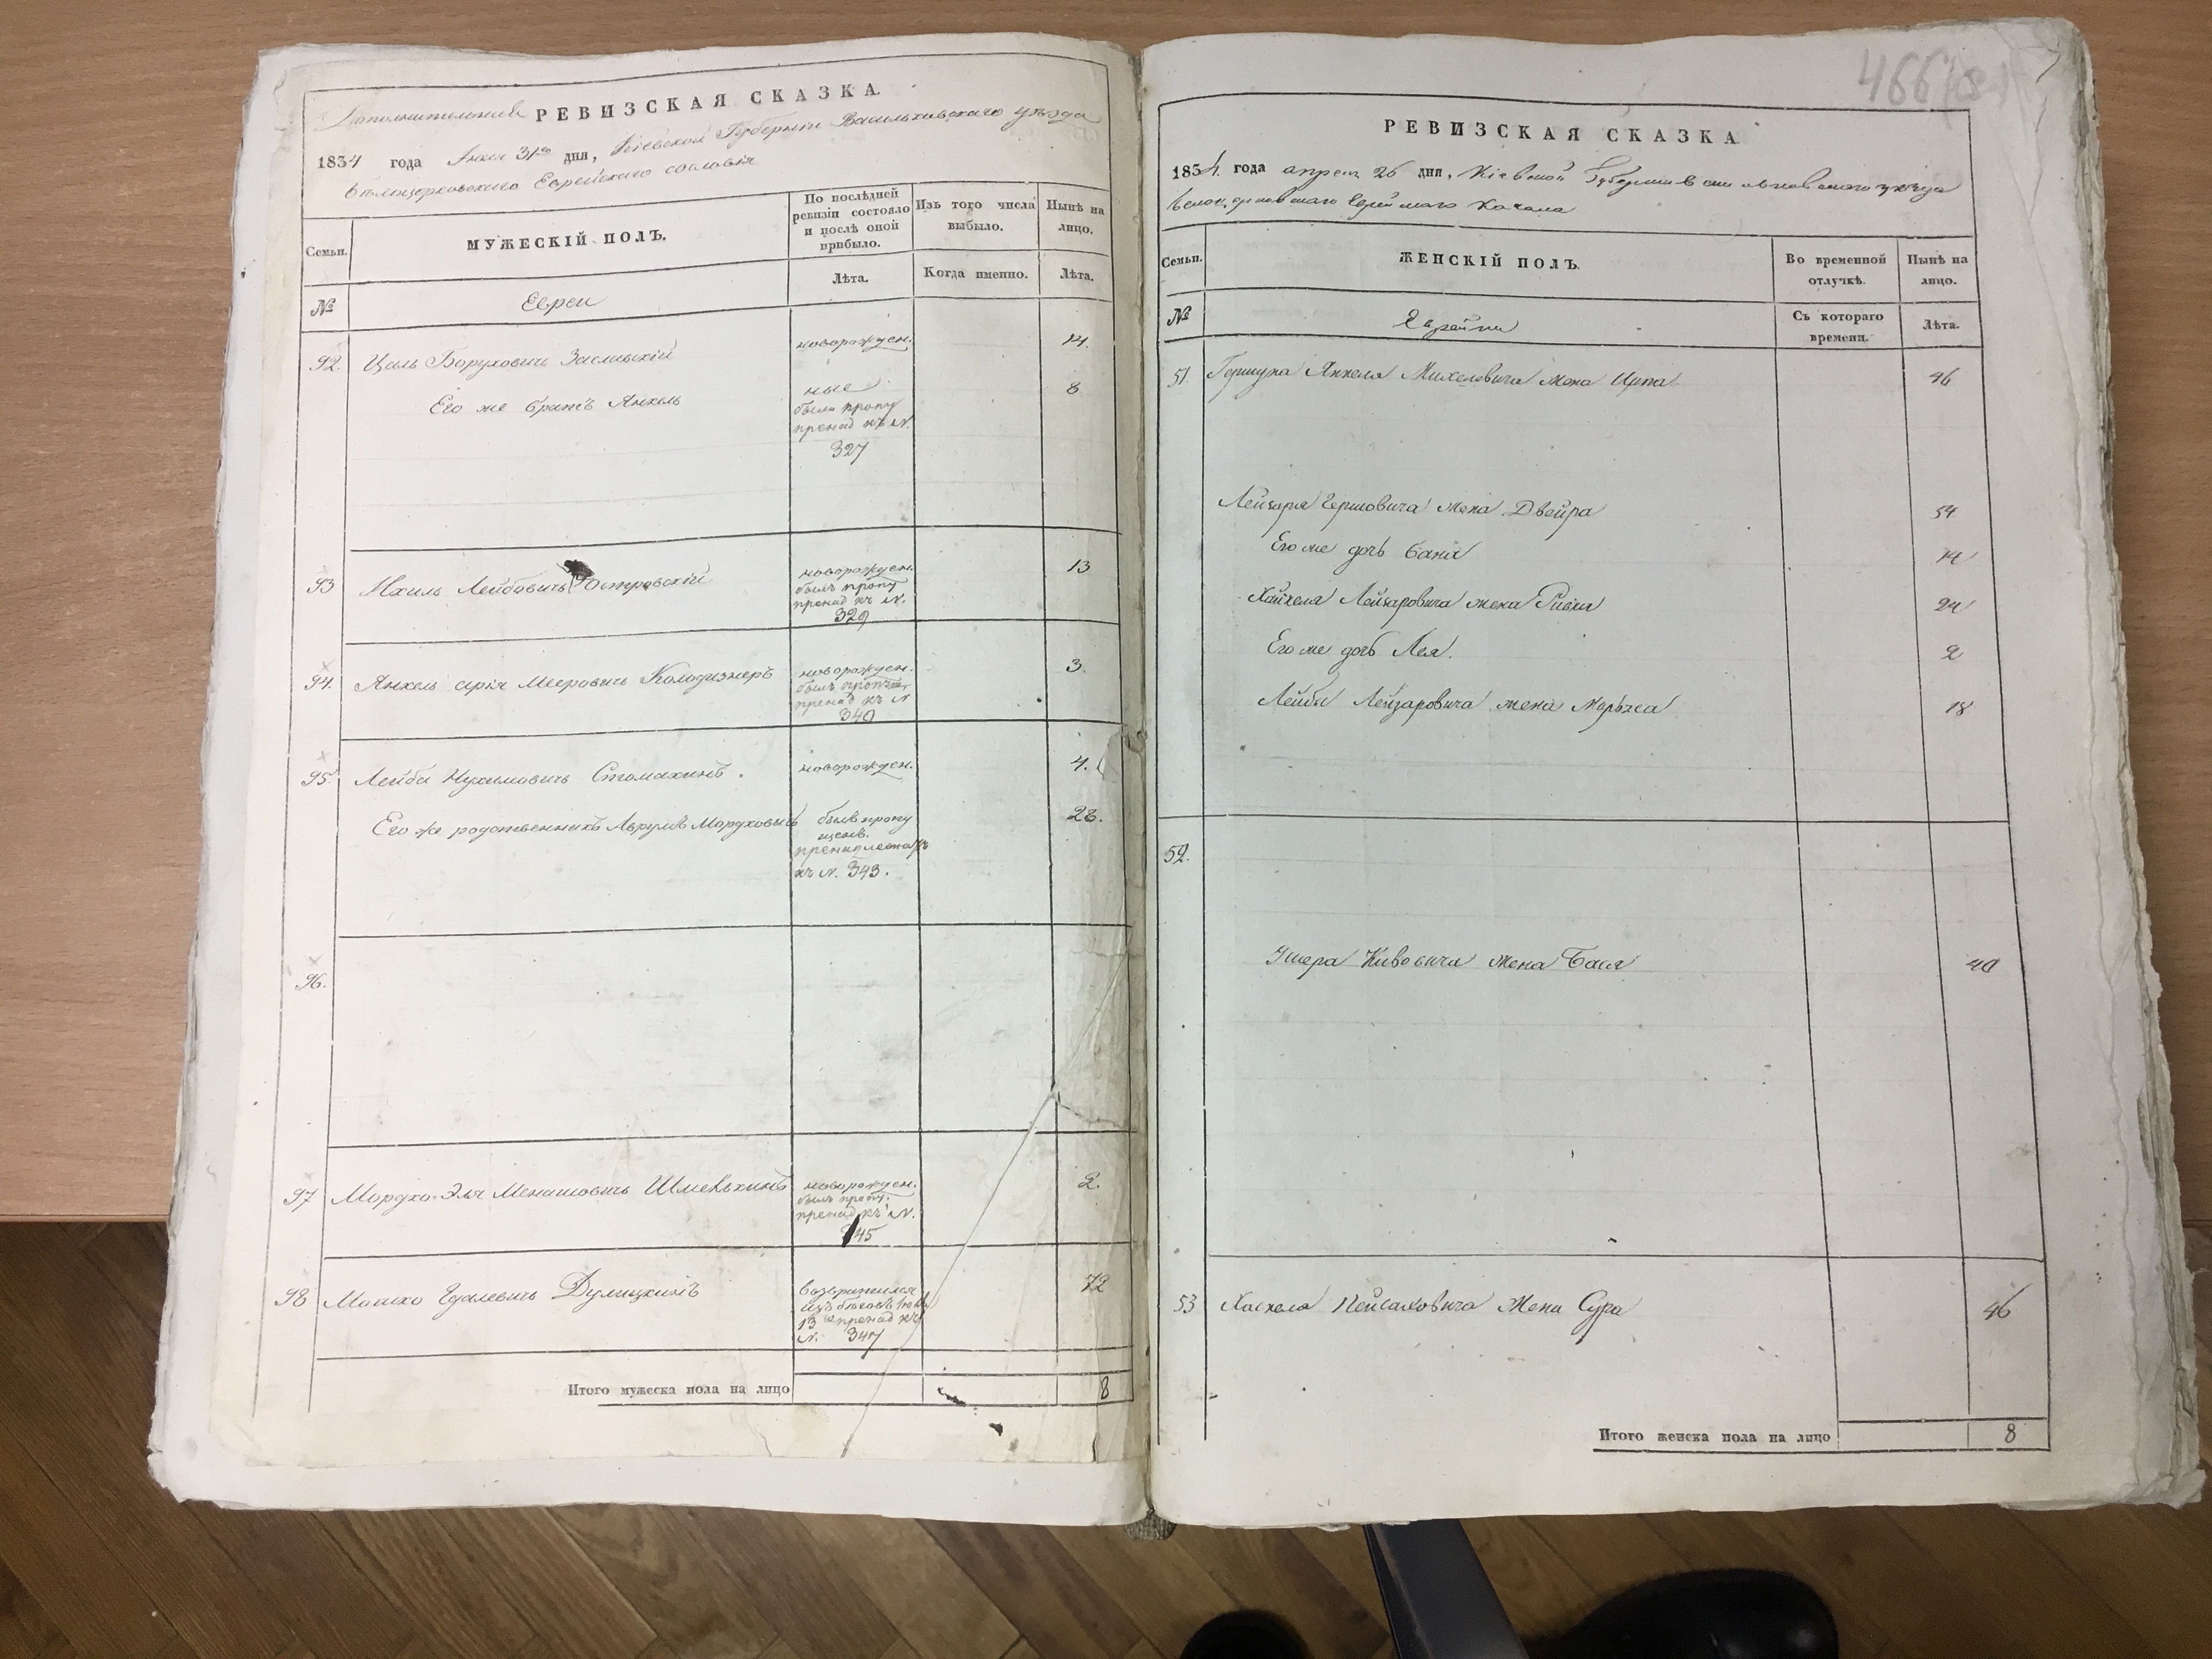 Дополнительная РЕВИЗСКАЯ СКАЗКА.
1834 года Мая 31го дня, Кіевской Губерніи Васильковскаго уѣзда
Бѣлоцерковскаго Еврейскаго сословія
Семьи.
МУЖЕСКІЙ ПОЛЪ.
По послѣдней ревизіи состояло и послѣ оной прибыло.
Изъ того числа выбыло.
Нынѣ на лицо.
Лѣта.
Когда именно.
Лѣта.
№
Евреи
92. Циль Боруховичь Заславскій новорожден. 14.
Его же братъ Янкель ные 8
были пропу
пренад къ N.
327
93 Ихиль Лейбовичь Островскій новорожден. 13
былъ пропу
пренад къ N.
329
94. Янкель Мееровичь Колодизнеръ новорожден. 3.
былъ пропу
пренад къ N
340
95. Лейба Нухимовичь Стомахинъ. новорожден. 4.
Его же родственникъ Аврумъ Мордуховичь былъ пропу 23.
щенъ.
къ N. 343.
96.
97 Мордухо Эля Менашовичь новорожден. 2.
былъ пропу.
пренад къ N.
45
98 Мошко Дулицкинъ 72
изъ бѣговъ
13 пренад къ
N. 347
Итого мужеска пола на лицо 8
466
РЕВИЗСКАЯ СКАЗКА
1834. года апреля 26 дня, Кіевской Губерніи Васильковскаго уѣзда
Белоцерковскаго Еврейскаго Кагала
Семьи.
ЖЕНСКІЙ ПОЛЪ.
Во временной отлучкѣ.
Нынѣ на лицо.
№
Еврейки
Съ котораго времени.
Лѣта.
51. Гершуна Янкеля Михелевича жена Ирта 46
Лейзара Гершовича жена Двейра 54
Его же дочь Баня 14
Хайкеля Лейзаровича жена Ривка 24
Его же дочь Лея. 2
Лейбы Лейзаровича жена 18
52.
Ушера Кивовича жена Бася 40
53 Хаскеля Пейсаховича жена Сура 46
Итого женска пола на лицо 8